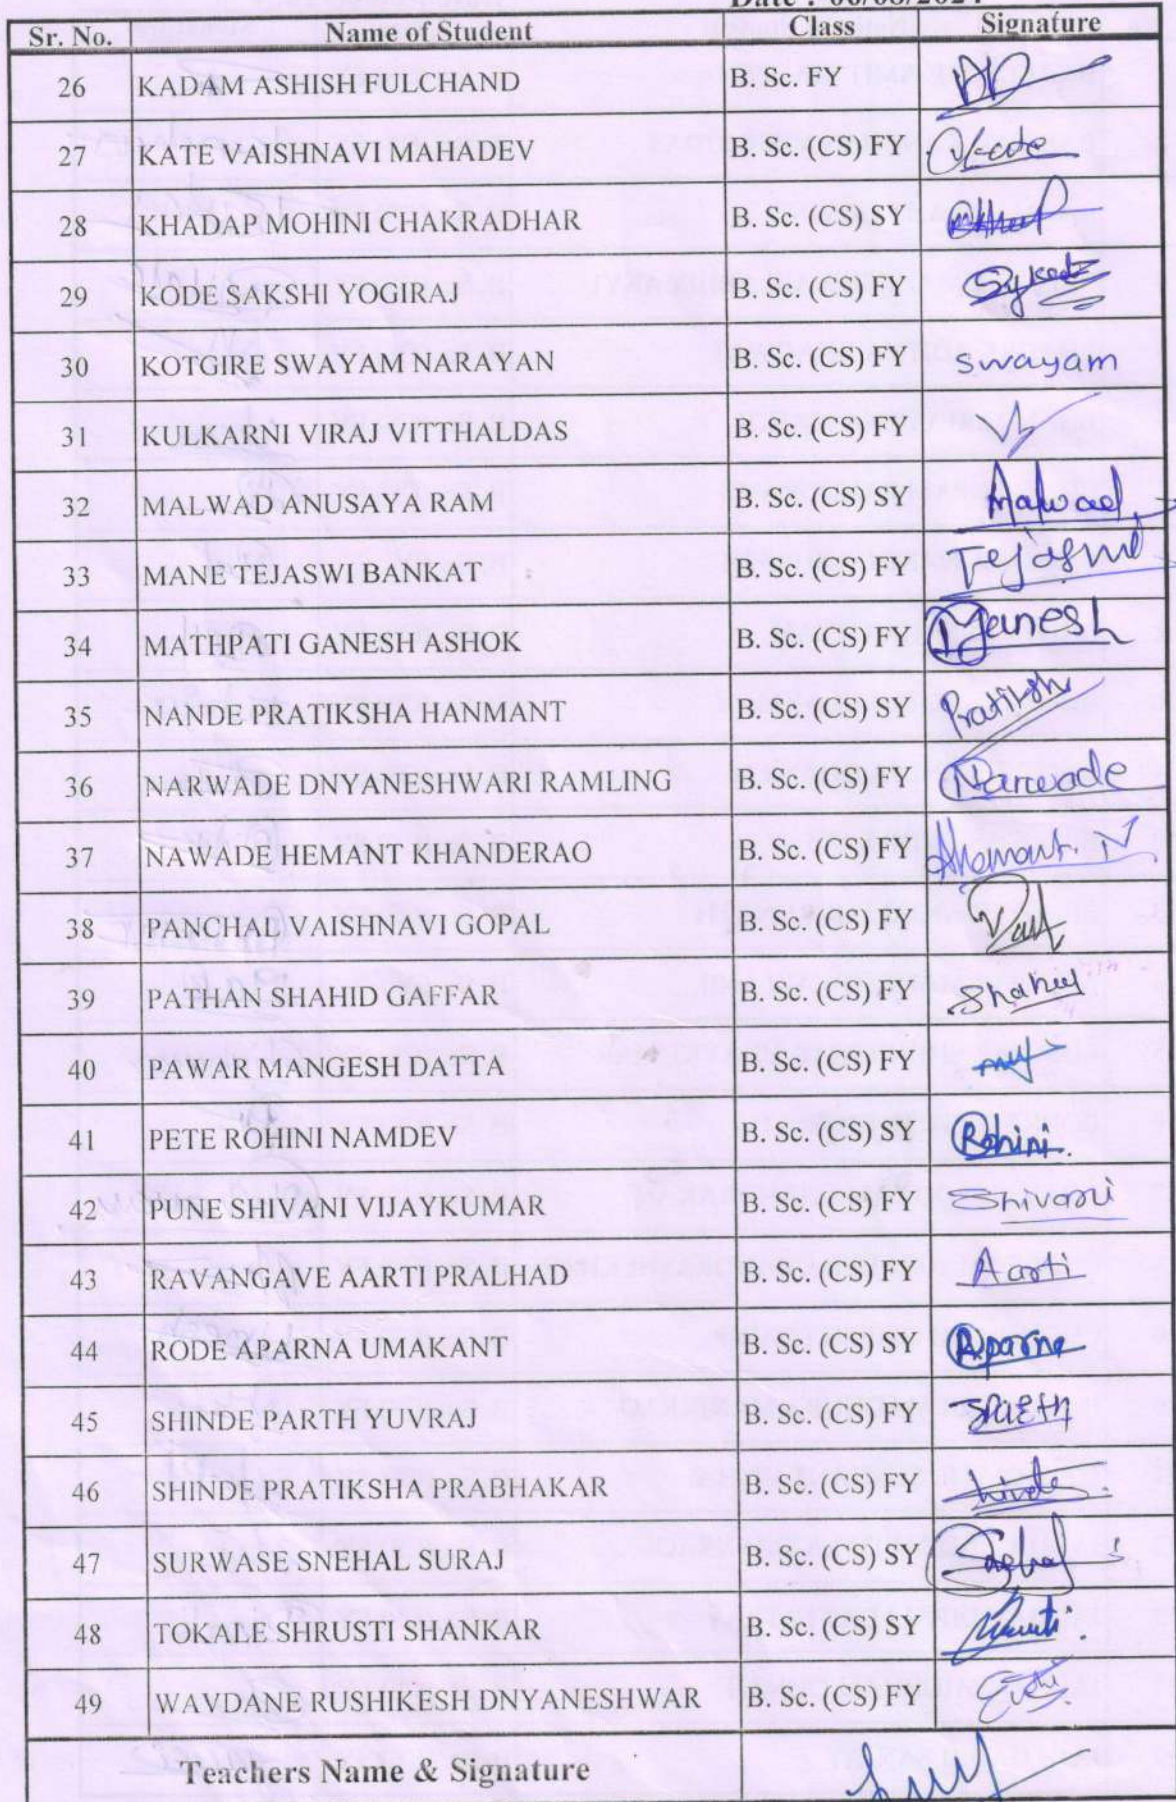 Sr. No. Name of Student Class Signature
26 KADAM ASHISH FULCHAND B. Sc. FY
27 KATE VAISHNAVI MAHADEV B. Sc. (CS) FY
28 KHADAP MOHINI CHAKRADHAR B. Sc. (CS) SY
29 KODE SAKSHI YOGIRAJ B. Sc. (CS) FY
30 KOTGIRE SWAYAM NARAYAN B. Sc. (CS) FY Swayam
31 KULKARNI VIRAJ VITTHALDAS B. Sc. (CS) FY
32 MALWAD ANUSAYA RAM B. Sc. (CS) SY Malwad
33 MANE TEJASWI BANKAT B. Sc. (CS) FY Tejaswi
34 MATHPATI GANESH ASHOK B. Sc. (CS) FY Ganesh
35 NANDE PRATIKSHA HANMANT B. Sc. (CS) SY Pratiksh
36 NARWADE DNYANESHWARI RAMLING B. Sc. (CS) FY Narwade
37 NAWADE HEMANT KHANDERAO B. Sc. (CS) FY Hemant. N
38 PANCHAL VAISHNAVI GOPAL B. Sc. (CS) FY
39 PATHAN SHAHID GAFFAR B. Sc. (CS) FY Shahid
40 PAWAR MANGESH DATTA B. Sc. (CS) FY
41 PETE ROHINI NAMDEV B. Sc. (CS) SY Rohini.
42 PUNE SHIVANI VIJAYKUMAR B. Sc. (CS) FY Shivani
43 RAVANGAVE AARTI PRALHAD B. Sc. (CS) FY Aarti
44 RODE APARNA UMAKANT B. Sc. (CS) SY Aparna
45 SHINDE PARTH YUVRAJ B. Sc. (CS) FY
46 SHINDE PRATIKSHA PRABHAKAR B. Sc. (CS) FY
47 SURWASE SNEHAL SURAJ B. Sc. (CS) SY Snehal
48 TOKALE SHRUSTI SHANKAR B. Sc. (CS) SY
49 WAVDANE RUSHIKESH DNYANESHWAR B. Sc. (CS) FY
Teachers Name & Signature